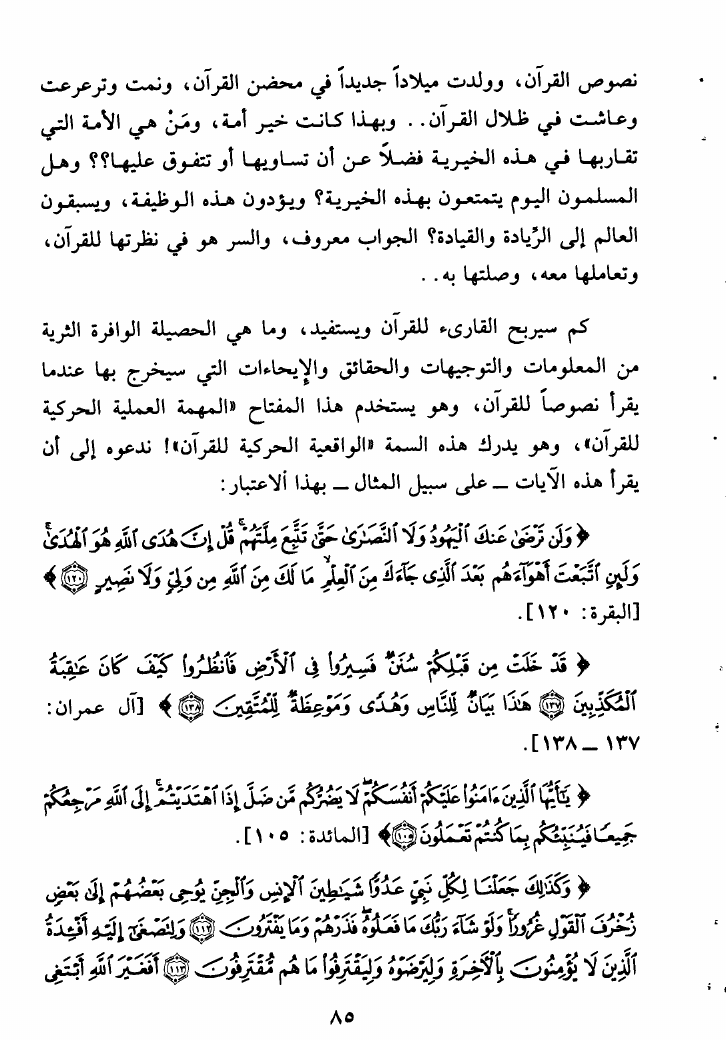 نصوص القرآن، وولدت ميلاداً جديداً في محضن القرآن، ونمت وترعرعت
وعاشت في ظلال القرآن.. وبهذا كانت خير أمة، ومَنْ هي الأمة التي
تقاربها في هذه الخيرية فضلاً عن أن تساويها أو تتفوق عليها؟؟ وهل
المسلمون اليوم يتمتعون بهذه الخيرية؟ ويؤدون هذه الوظيفة، ويسبقون
العالم إلى الرِّيادة والقيادة؟ الجواب معروف، والسر هو في نظرتها للقرآن،
وتعاملها معه، وصلتها به..
كم سيربح القارىء للقرآن ويستفيد، وما هي الحصيلة الوافرة الثرية
من المعلومات والتوجيهات والحقائق والإيحاءات التي سيخرج بها عندما
يقرأ نصوصاً للقرآن، وهو يستخدم هذا المفتاح «المهمة العملية الحركية
للقرآن»، وهو يدرك هذه السمة «الواقعية الحركية للقرآن»! ندعوه إلى أن
يقرأ هذه الآيات ــ على سبيل المثال ــ بهذا الاعتبار:
﴿ وَلَن تَرْضَىٰ عَنكَ ٱلْيَهُودُ وَلَا ٱلنَّصَٰرَىٰ حَتَّىٰ تَتَّبِعَ مِلَّتَهُمْ ۗ قُلْ إِنَّ هُدَى ٱللَّهِ هُوَ ٱلْهُدَىٰ ۗ
وَلَئِنِ ٱتَّبَعْتَ أَهْوَآءَهُم بَعْدَ ٱلَّذِى جَآءَكَ مِنَ ٱلْعِلْمِ ۙ مَا لَكَ مِنَ ٱللَّهِ مِن وَلِىٍّ وَلَا نَصِيرٍ ﴿١٢٠﴾ ﴾
[البقرة: ١٢٠].
﴿ قَدْ خَلَتْ مِن قَبْلِكُمْ سُنَنٌ فَسِيرُوا۟ فِى ٱلْأَرْضِ فَٱنظُرُوا۟ كَيْفَ كَانَ عَٰقِبَةُ
ٱلْمُكَذِّبِينَ ﴿١٣٧﴾ هَٰذَا بَيَانٌ لِّلنَّاسِ وَهُدًى وَمَوْعِظَةٌ لِّلْمُتَّقِينَ ﴿١٣٨﴾ ﴾ [آل عمران:
١٣٧ ــ ١٣٨].
﴿ يَٰٓأَيُّهَا ٱلَّذِينَ ءَامَنُوا۟ عَلَيْكُمْ أَنفُسَكُمْ ۖ لَا يَضُرُّكُم مَّن ضَلَّ إِذَا ٱهْتَدَيْتُمْ ۚ إِلَى ٱللَّهِ مَرْجِعُكُمْ
جَمِيعًا فَيُنَبِّئُكُم بِمَا كُنتُمْ تَعْمَلُونَ ﴿١٠٥﴾ ﴾ [المائدة: ١٠٥].
﴿ وَكَذَٰلِكَ جَعَلْنَا لِكُلِّ نَبِىٍّ عَدُوًّا شَيَٰطِينَ ٱلْإِنسِ وَٱلْجِنِّ يُوحِى بَعْضُهُمْ إِلَىٰ بَعْضٍ
زُخْرُفَ ٱلْقَوْلِ غُرُورًا ۚ وَلَوْ شَآءَ رَبُّكَ مَا فَعَلُوهُ ۖ فَذَرْهُمْ وَمَا يَفْتَرُونَ ﴿١١٢﴾ وَلِتَصْغَىٰٓ إِلَيْهِ أَفْـِٔدَةُ
ٱلَّذِينَ لَا يُؤْمِنُونَ بِٱلْءَاخِرَةِ وَلِيَرْضَوْهُ وَلِيَقْتَرِفُوا۟ مَا هُم مُّقْتَرِفُونَ ﴿١١٣﴾ أَفَغَيْرَ ٱللَّهِ أَبْتَغِى
٨٥